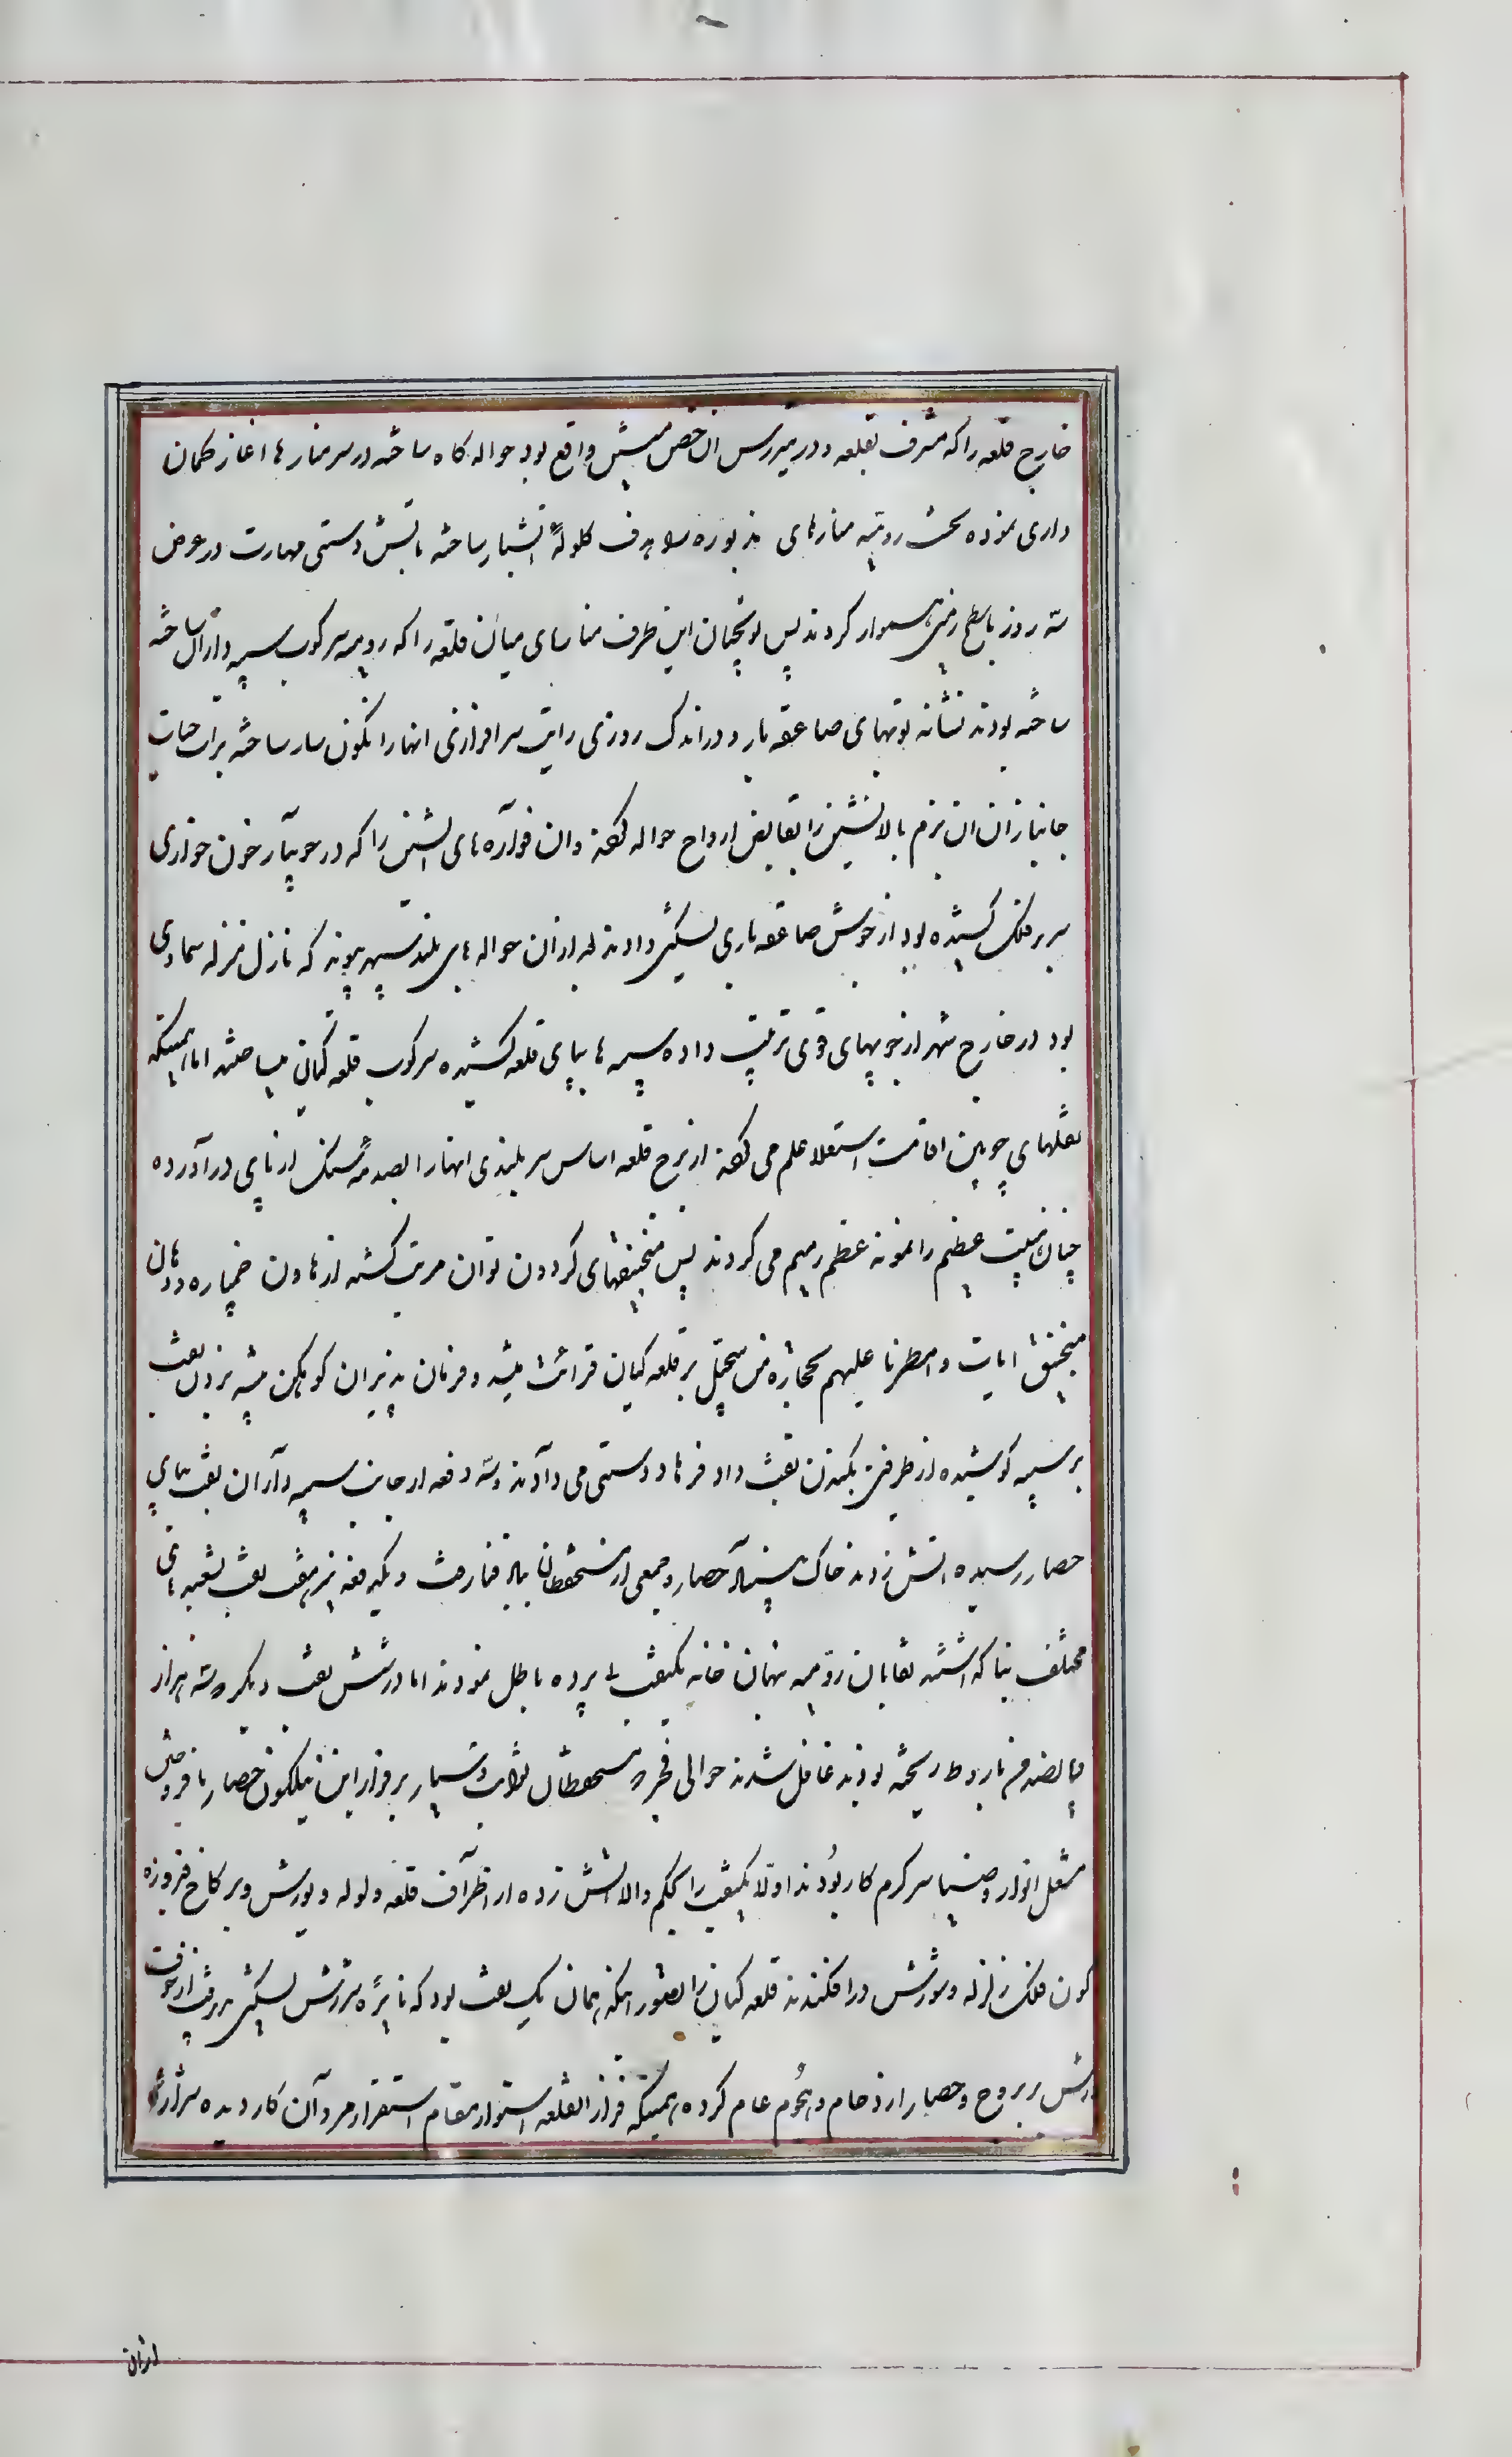 خارج قلعه را که مشرف بقلعه و در تیررس ان حصن میبن واقع بود حواله کاه ساخته در سر منارها اغاز کمان
داری نموده نخست رومیه منارهای مذبوره را هدف کلولهٔ اتشبار ساخته باتش دستی مهارت در عرض
سه روز با سطح زمین هموار کردند پس توپچیان این طرف منارهای میان قلعه را که رومیه سرکوب سیبه داران ساخته
ساخته بودند نشانه توپهای صاعقه بار و در اندک روزی رایت سرافرازی انها را نکون سار ساخته برات حیات
جانبازان ان بزم بالانشین را بقابض ارواح حواله کرد وان فواره های اتشین را که در جویبار خون خواری
سر بر فلک کشیده بود از جوش صاعقه باری تسکین دادند بعد ازان حواله های بلند سپهر پیوند که نازل منزله سماوی
بود در خارج شهر از چوبهای قوی ترتیب داده سیبه ها بپای قلعه کشیده سرکوب قلعه کیان میساختند اما همینکه
نقلهای چوبین اقامت استعلا علم می کرد از برج قلعه اساس سربلندی انها را بصدمهٔ سنک از پای دراورده
چنان هیئت عظیم را نمونه عظم رمیم می کردند پس منجنیقهای کردون توان مرتب کشته از هاون خمپاره و دهان
منجنیق ایات و امطرنا علیهم حجارة من سجیل بر قلعه کیان قرائت میشد و فرمان پذیران کوهکن تیشه بزدن نقب
بر سیبه کوشیده از طرفین بکندن نقب داد فرهاد دستی می دادند و سه دفعه از جانب سیبه داران نقب بپای
حصار رسیده اتش زدند خاک حصار و جمعی از مستحفظان بباد فنا رفت و یکدفعه نیز هفت نقب بشعبه های
مختلف بنا کذاشته نقابان رومیه نهان خانه یکنقب را پی برده باطل نمودند اما در شش نقب دیکر که سه هزار
و پانصد من باروط ریخته بودند غافل شدند حوالی فجر که مستحفظان ثوابت و سیار بر فراز این نیلکون حصار بافروختن
مشعل انوار و ضیا سرکرم کار بودند اولا یکنقب را بحکم والا اتش زده از اطراف قلعه ولوله و یورش و بر کاخ فیروزه
کون فلک زلزله و شورش درافکندند قلعه کیان را بتصور اینکه همان یک نقب بود که نایرهٔ شررش تسکین پذیرفت از جوف
ارتش بر بروج و حصار ازدحام و هجوم عام کرده همینکه فراز القلعه استوار مقام استقرار مردان کار دیده شرار
ازان